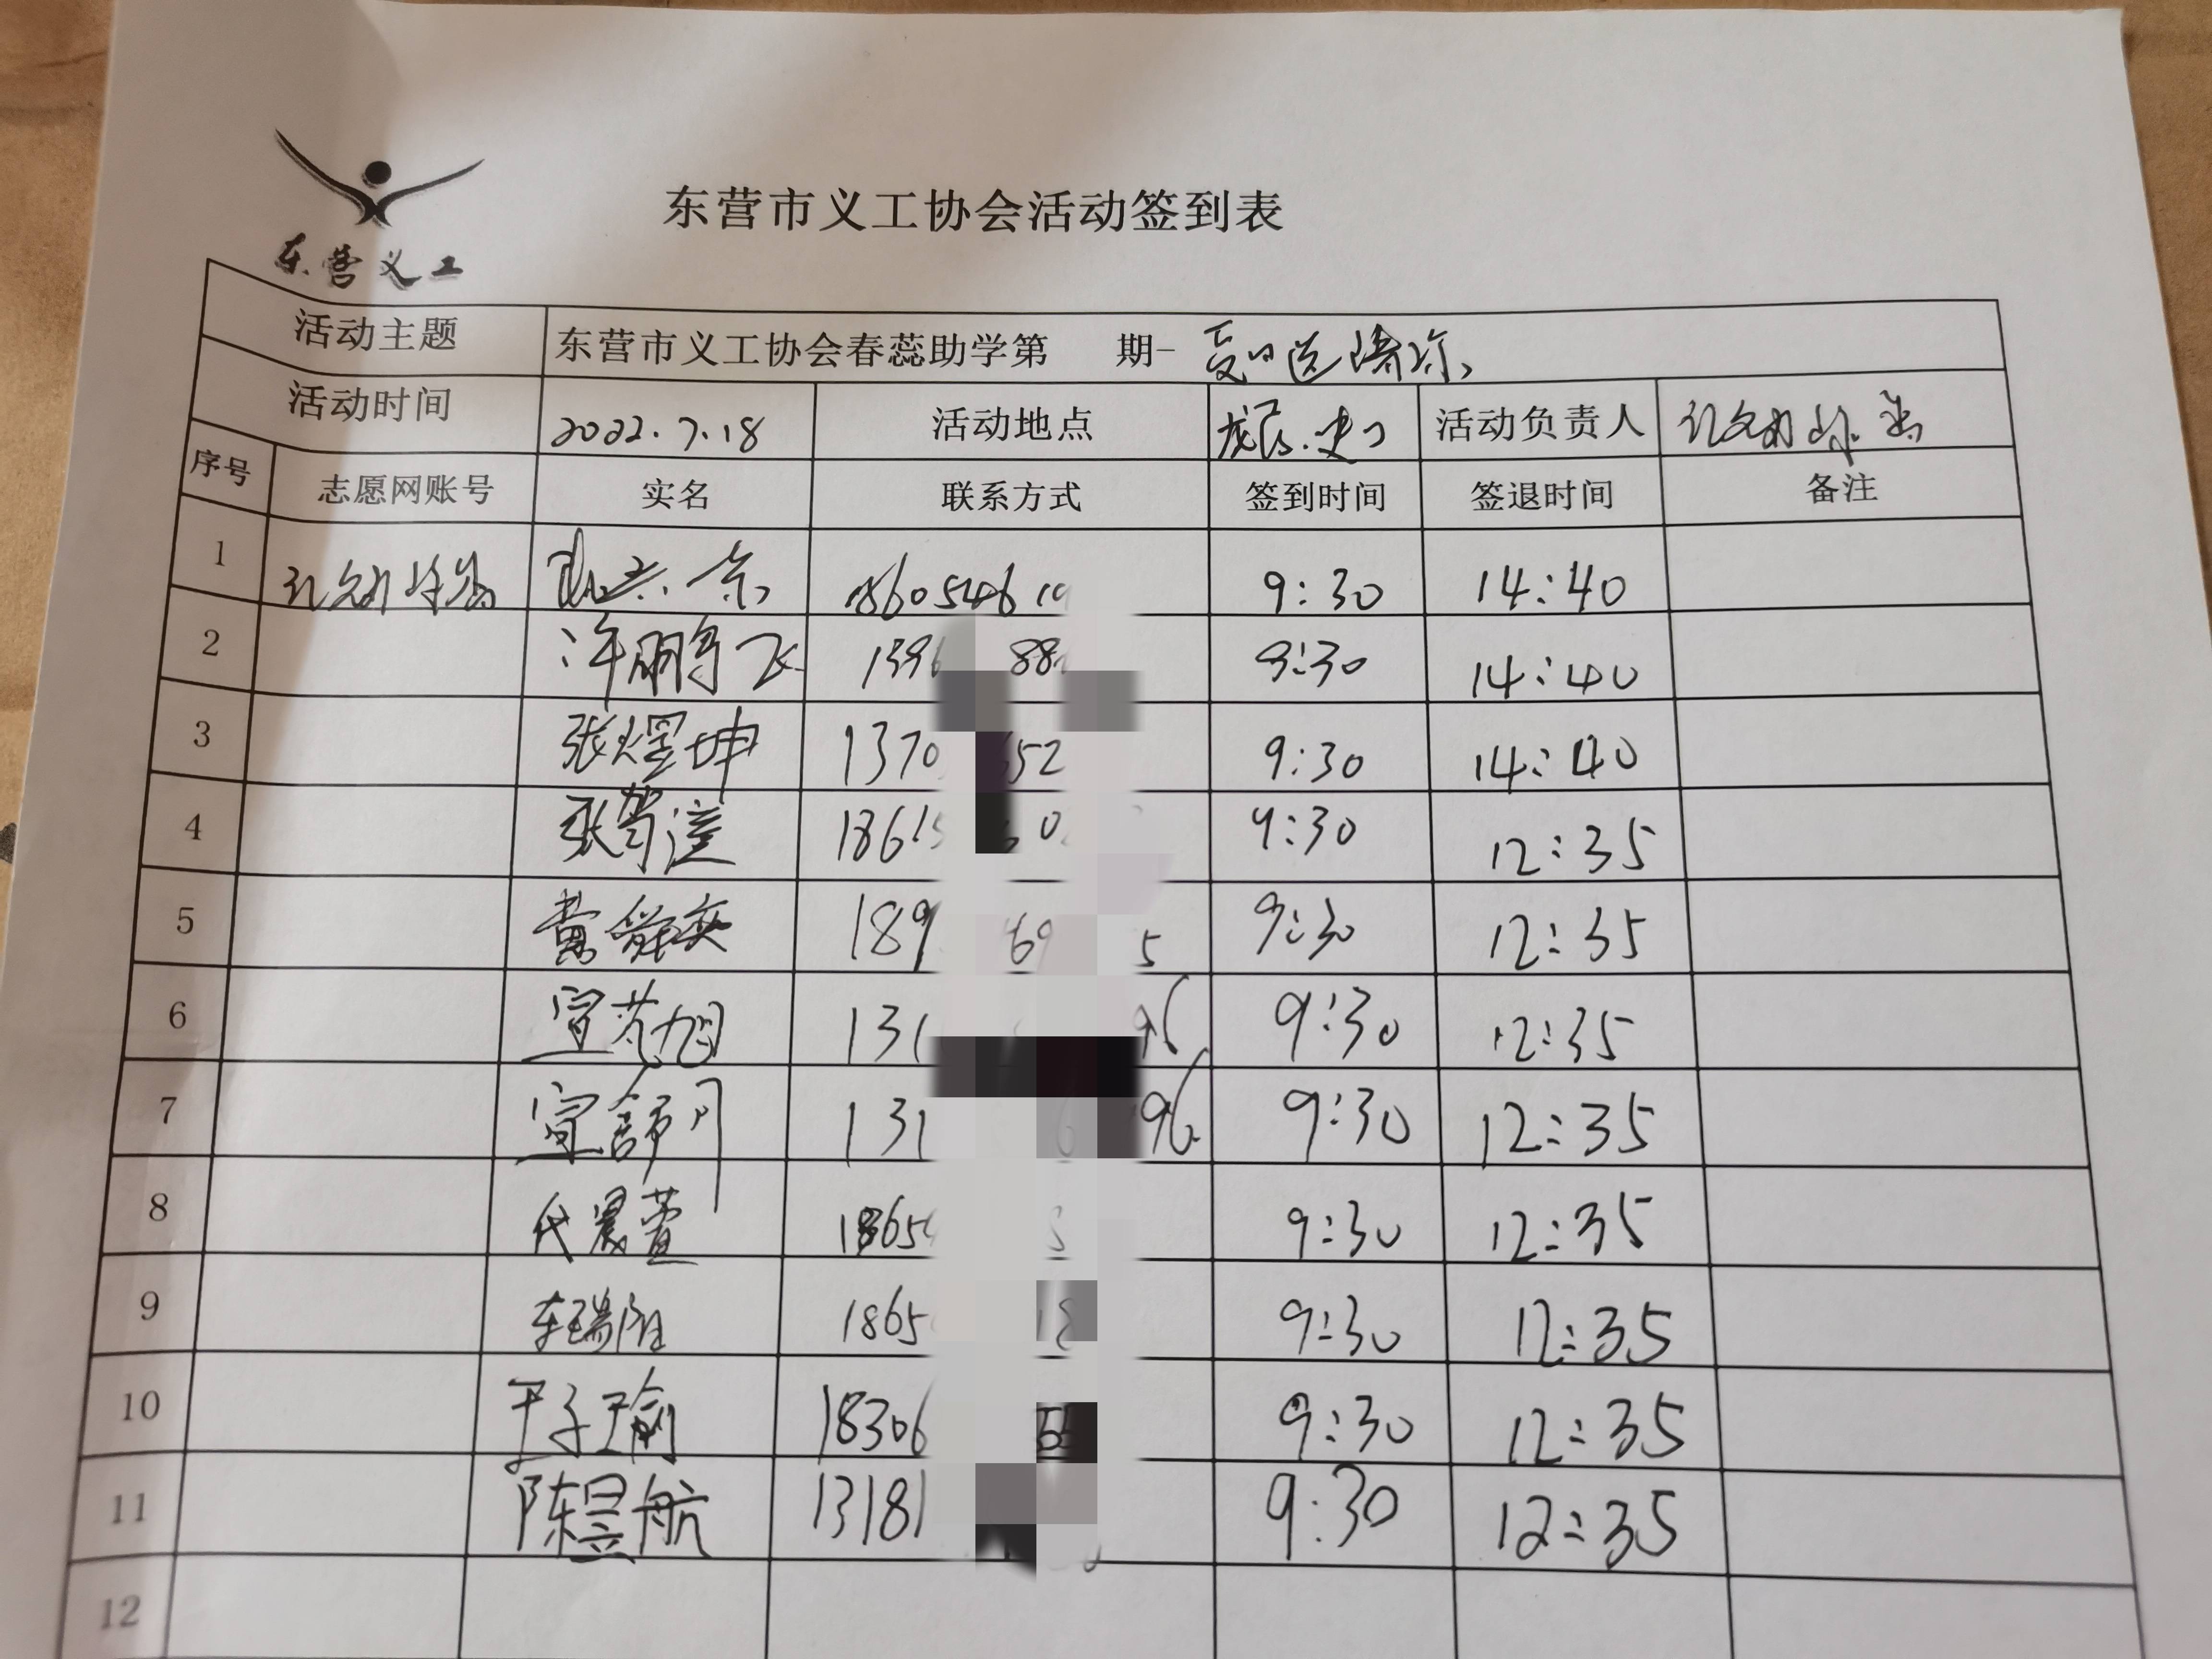 东营义工
东营市义工协会活动签到表
活动主题 东营市义工协会春蕊助学第 期- 夏日送清凉
活动时间 2022.7.18 活动地点 龙居.史口 活动负责人
序号 志愿网账号 实名 联系方式 签到时间 签退时间 备注
1 9:30 14:40
2 许鹏飞 139 88 9:30 14:40
3 张煜坤 1370 52 9:30 14:40
4 1861 0 9:30 12:35
5 黄 奕 189 69 5 9:30 12:35
6 宣 旭 131 96 9:30 12:35
7 宣舒月 131 96 9:30 12:35
8 代晨萱 1865 9:30 12:35
9 车瑞阳 1865 9:30 12:35
10 王子瑜 18306 9:30 12:35
11 陈昱航 13181 9:30 12:35
12